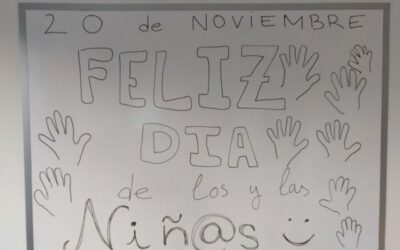 20 de NOVIEMBRE
FELIZ
DIA
de los y las
Niñ@s